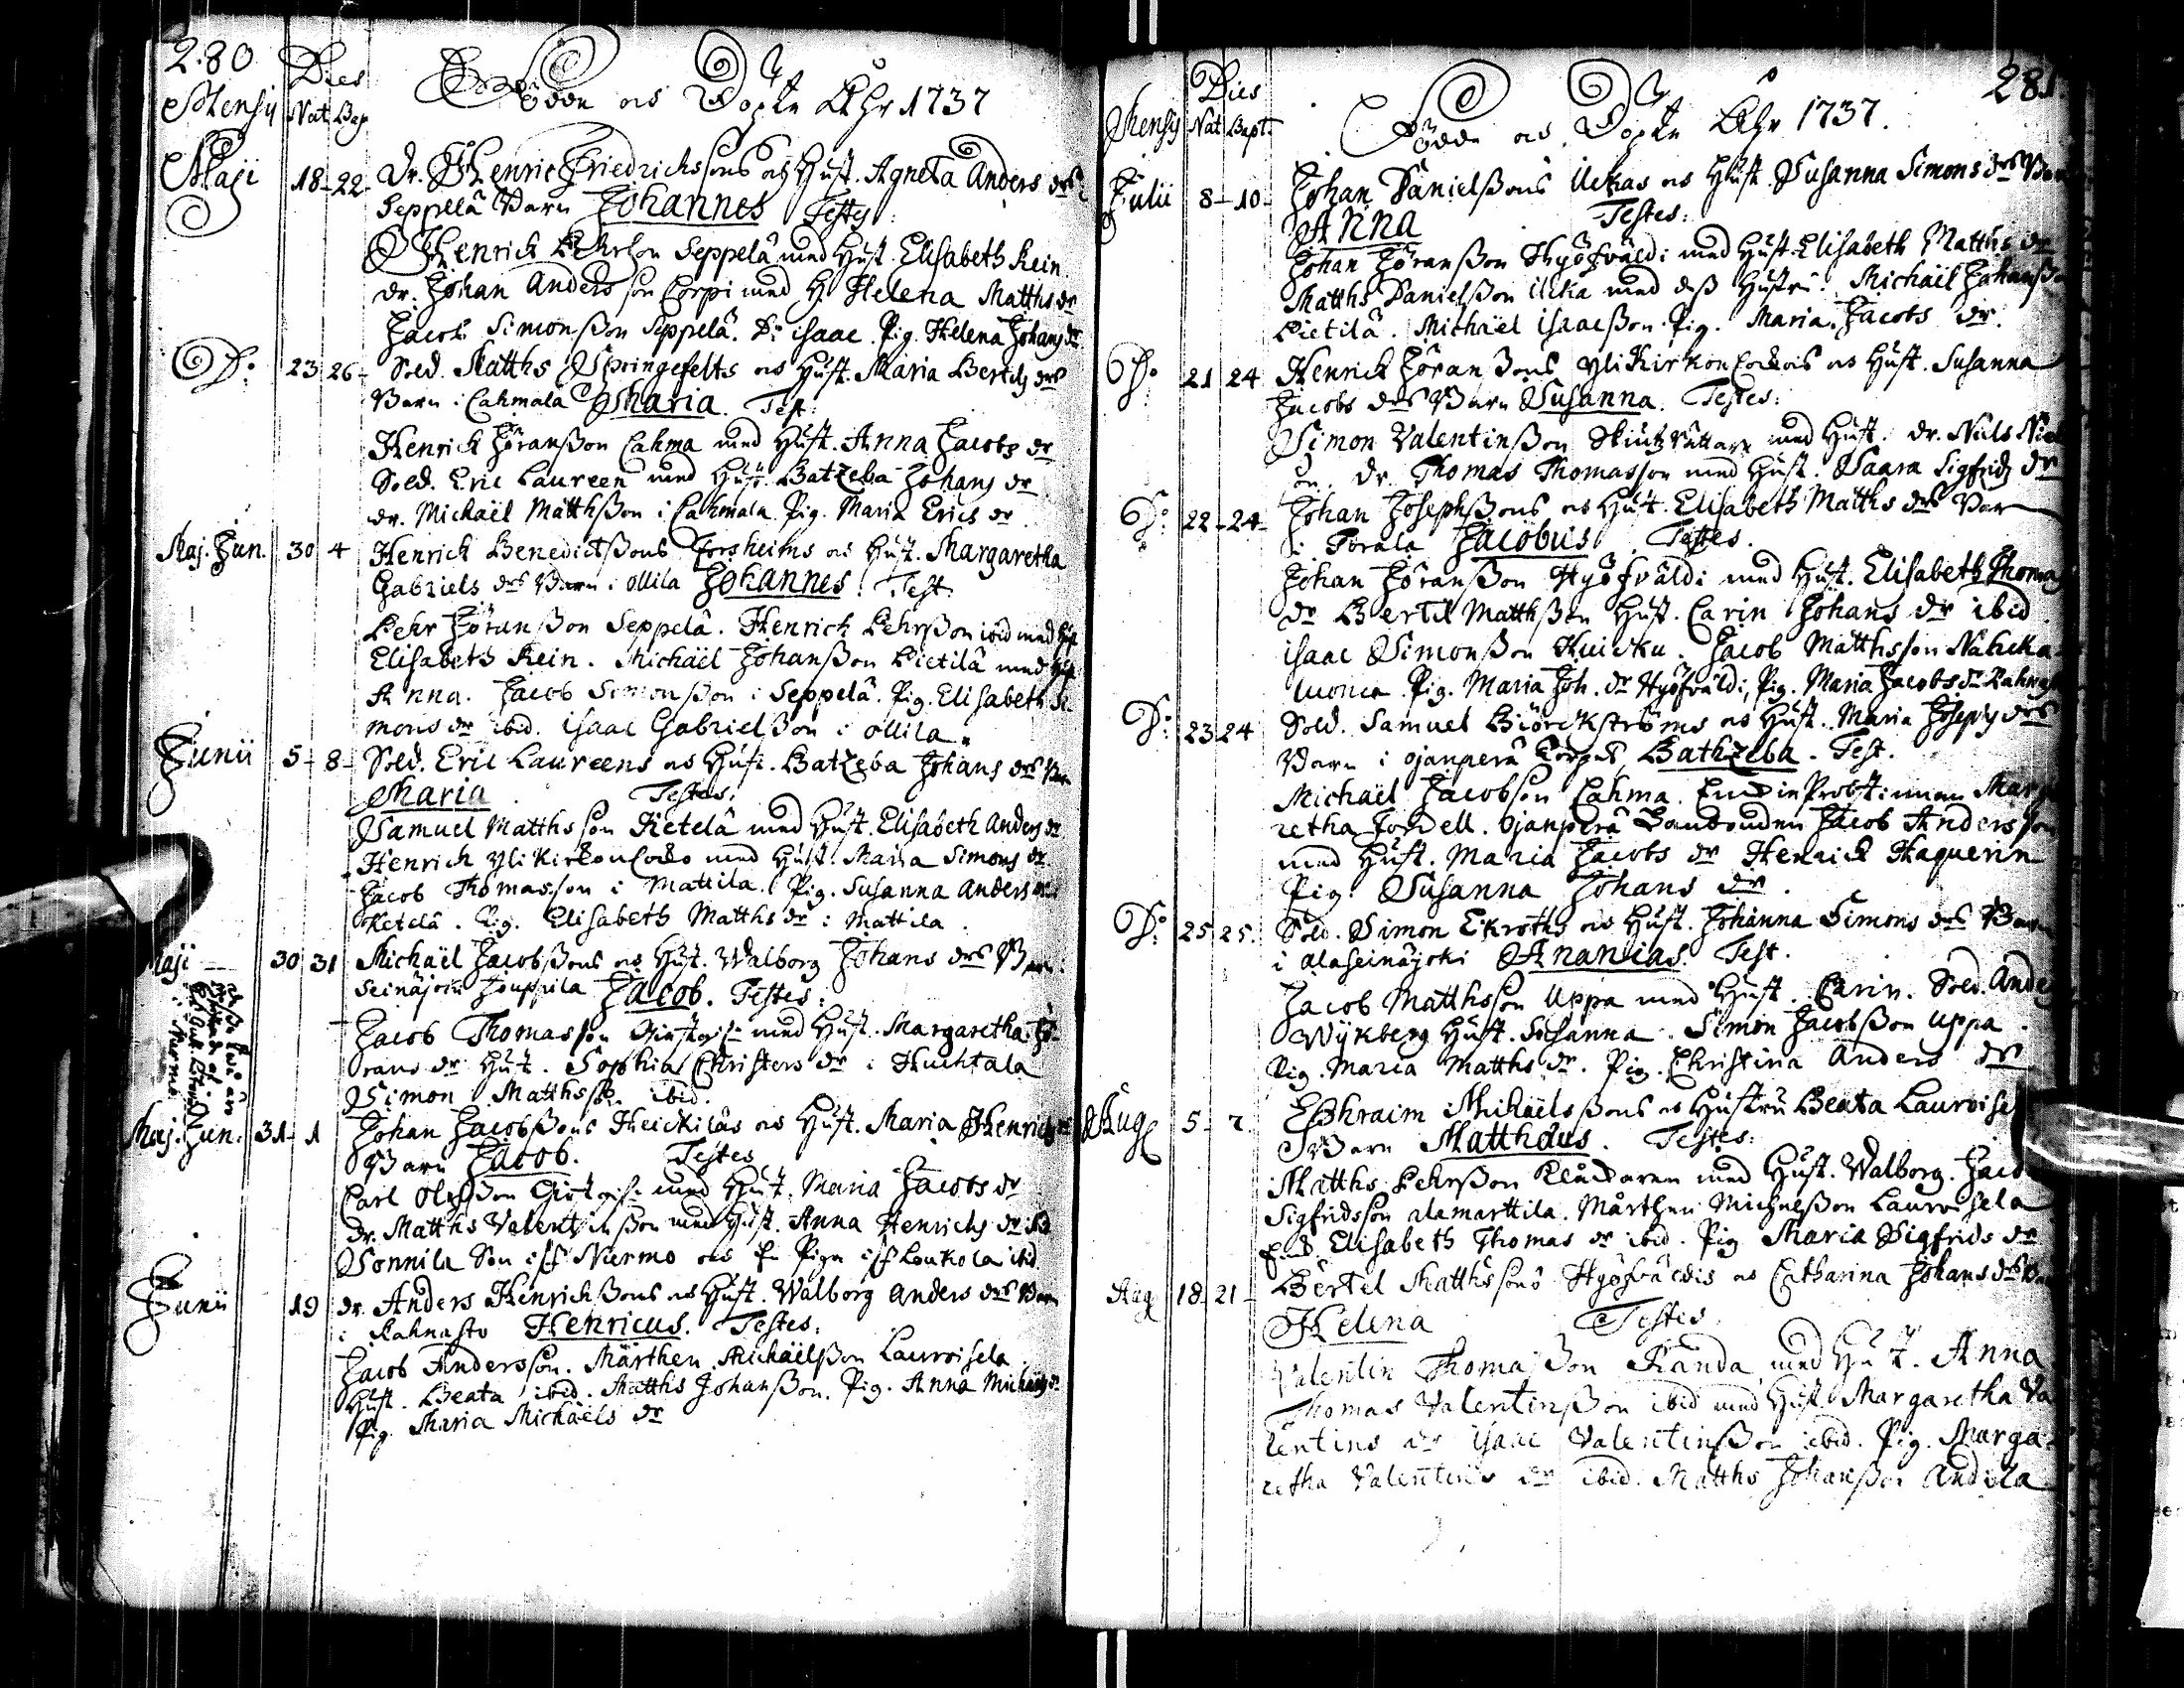 280
Dies
Mensis Nat. Bap.
Födde och Döpte Åhr 1737
Maji 18-22- Dr. Henric Friedrichssons och Hust. Agneta Anders drs
Seppelä Barn Johannes Testes:
Henrich Pehrson Seppelä med Hust. Elisabeth Rein
dr. Johan Andersson Corpi med H. Helena Matths dr
Jacob Simonsson Seppelä. Dr. isaac. Pig. Helena Johans dr.
D:o 23 26- Sold. Matths Springefelts och Hust. Maria Bertils drs
Barn i Cahmala Maria. Test:
Henrich Jöransson Cahma med Hust. Anna Jacobs dr
Sold. Eric Laureen med Hust. Batzeba Johans dr
dr. Michaël Matthsson i Cahmala. Pig. Maria Erics dr
Maj. Jun. 30 4 Henrich Benedictssons Forsheims och Hust. Margaretha
Gabriels drs Barn i ollila Johannes. Test.
Pehr Jöransson Seppelä. Henrich Pehrsson ibid med Hust
Elisabeth Rein. Michaël Johansson Pietilä med Hust
Anna. Jacob Simonsson i Seppelä. Pig. Elisabeth Si-
mons dr ibid. isaac Gabrielsson i ollila.
Junii 5-8- Sold. Eric Laureens och Hust. Batzeba Johans drs Barn
Maria Testes:
Samuel Matthsson Ketelä med Hust. Elisabeth Anders dr
Henrich ylikirkoncocko med Hust. Maria Simons dr.
Jacob Thomasson i Mattila. Pig. Susanna Anders dr
Ketelä. Pig. Elisabeth Matths dr i Mattila.
Maji 30 31 Michaël Jacobssons och Hust. Walborg Johans drs Barn i
Seinäjoki Jouppila Jacob. Testes:
Jacob Thomasson med Hust. Margaretha Jö-
rans dr Hust. Sophia Christers dr i Huchtala
Simon Matthsson ibid.
Maj. Jun. 31-1 Johan Jacobssons Heickiläs och Hust. Maria Henrichs drs
Barn Jacob. Testes
Carl med Hust. Maria Jacobs dr
dr. Matths Valentinsson med Hust. Anna Henrichs dr ibid
Sonnila Son if Niermo och En Piga if Loukola ibid.
Junii 19 dr. Anders Henrichssons och Hust. Walborg Anders drs Barn
i Rahnasto Henricus. Testes.
Jacob Andersson. Mårthen Michaëlsson Lauroisela.
Hust. Beata ibid. Matths Johansson. Pig. Anna Michaels dr
Pig. Maria Michaëls dr
281.
Dies
Mensis Nat Bapt.
Födde och Döpte Åhr 1737.
Julii 8-10- Johan Danielssons Uckas och Hust. Susanna Simons drs Barn
Anna Testes:
Johan Jöransson Hyöfväldi med Hust. Elisabeth Matths dr
Matths Danielsson Ucka med dess Hustru. Michaël Johansson
Pietilä. Michaël isaacsson. Pig. Maria Jacobs dr.
D:o 21 24 Henrich Jöranssons ylikirkoncockos och Hust. Susanna
Jacobs drs Barn Susanna. Testes:
Simon Valentinsson med Hust. dr. Nils
dr. Thomas Thomasson med Hust. Saara Sigfrids dr
D:o 22-24- Johan Josephssons och Hust. Elisabeth Matths drs Barn
i Törälä Jacobus. Testes.
Johan Jöransson Hyöfväldi med Hust. Elisabeth Thomas
dr Bertil Matthsson Hust. Carin Johans dr ibid.
isaac Simonsson Huicku. Jacob Matthsson
Pig. Maria Joh. dr Hyöfväldi, Pig. Maria Jacobs dr Rahnast
D:o 23 24 Sold. Samuel Biörckströms och Hust. Maria Josephs drs
Barn i ojanperä Bathzeba. Test.
Michaël Jacobson Cahma. Marga-
retha Fordell. Ojanperä Jacob Andersson
med Hust. Maria Jacobs dr Henrich Haquerin
Pig. Susanna Johans dr.
D:o 25 25. Sold. Simon Ekroths och Hust. Johanna Simons drs Barn
i alaseinäjoki Ananias. Test.
Jacob Matthsson Uppa med Hust. Carin. Sold. Anders
Wijkberg Hust. Susanna. Simon Jacobsson Uppa.
Pig. Maria Matths dr. Pig. Christina Anders dr
Aug 5-7. Ephraim Michaëlssons och Hustru Beata Lauroisela
Barn Matthæus. Testes:
Matths Pehrsson Klåckaren med Hust. Walborg. Jacob
Sigfridsson alamarttila. Mårthen Michelsson Lauroisela
Elisabeth Thomas dr ibid. Pig. Maria Sigfrids dr
Aug 18-21- Bertel Matthssons Hyöfväldis och Catharina Johans drs Barn
Helena Testes
Valentin Thomasson Randa med Hust. Anna
Thomas Valentinsson ibid med Hust. Margaretha Va-
lentins dr isaac Valentinsson ibid. Pig. Marga-
retha Valentins dr ibid. Matths Johansson Andila